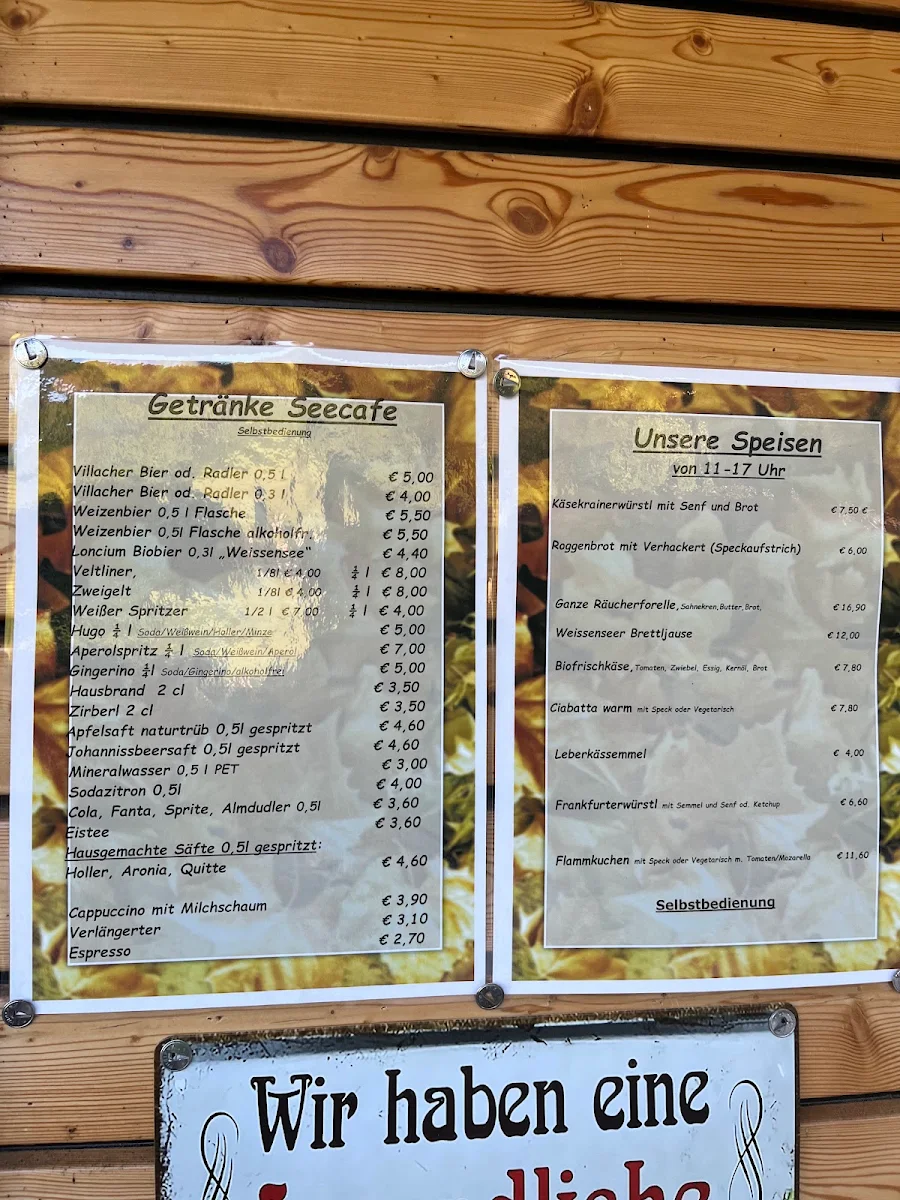 Getränke Seecafe
Selbstbedienung
Villacher Bier od. Radler 0,5 l € 5,00
Villacher Bier od. Radler 0,3 l € 4,00
Weizenbier 0,5 l Flasche € 5,50
Weizenbier 0,5l Flasche alkoholfr. € 5,50
Loncium Biobier 0,3l „Weissensee“ € 4,40
Veltliner, 1/8l € 4,00 ¼ l € 8,00
Zweigelt 1/8l € 4,00 ¼ l € 8,00
Weißer Spritzer 1/2 l € 7,00 ¼ l € 4,00
Hugo ¼ l Soda/Weißwein/Holler/Minze € 5,00
Aperolspritz ¼ l Soda/Weißwein/Aperol € 7,00
Gingerino ¼l Soda/Gingerino/alkoholfrei € 5,00
Hausbrand 2 cl € 3,50
Zirberl 2 cl € 3,50
Apfelsaft naturtrüb 0,5l gespritzt € 4,60
Johannissbeersaft 0,5l gespritzt € 4,60
Mineralwasser 0,5 l PET € 3,00
Sodazitron 0,5l € 4,00
Cola, Fanta, Sprite, Almdudler 0,5l € 3,60
Eistee € 3,60
Hausgemachte Säfte 0,5l gespritzt:
Holler, Aronia, Quitte € 4,60
Cappuccino mit Milchschaum € 3,90
Verlängerter € 3,10
Espresso € 2,70
Unsere Speisen
von 11-17 Uhr
Käsekrainerwürstl mit Senf und Brot € 7,50 €
Roggenbrot mit Verhackert (Speckaufstrich) € 6,00
Ganze Räucherforelle, Sahnekren, Butter, Brot, € 16,90
Weissenseer Brettljause € 12,00
Biofrischkäse, Tomaten, Zwiebel, Essig, Kernöl, Brot € 7,80
Ciabatta warm mit Speck oder Vegetarisch € 7,80
Leberkässemmel € 4,00
Frankfurterwürstl mit Semmel und Senf od. Ketchup € 6,60
Flammkuchen mit Speck oder Vegetarisch m. Tomaten/Mozarella € 11,60
Selbstbedienung
Wir haben eine